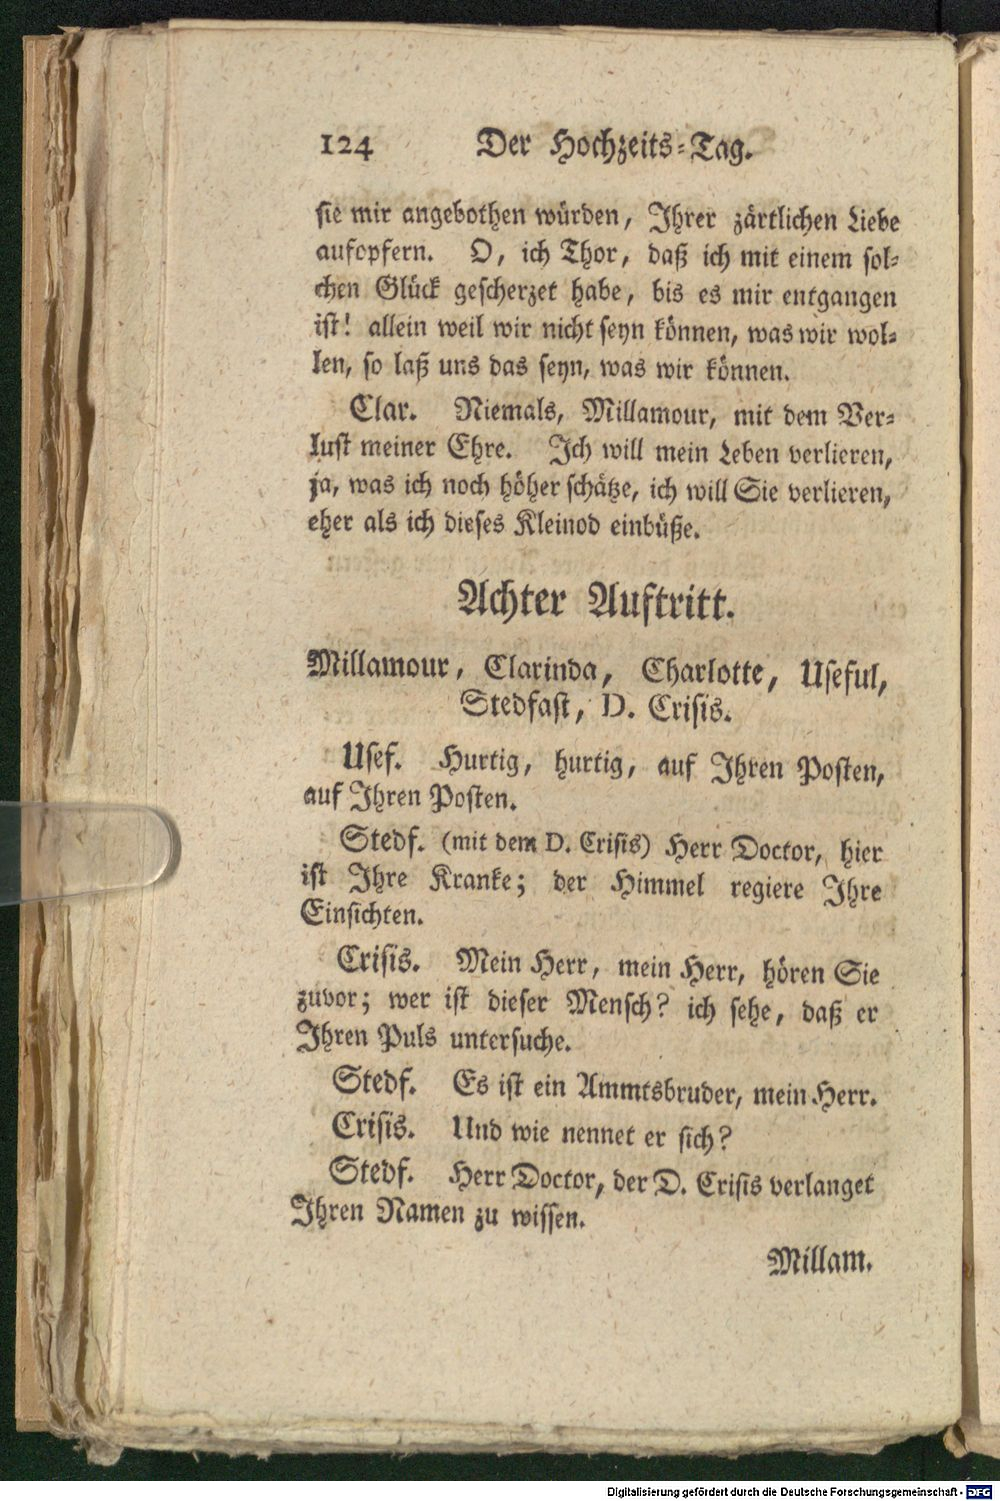 124 Der Hochzeits-Tag.
sie mir angebothen würden, Ihrer zärtlichen Liebe
aufopfern. O, ich Thor, daß ich mit einem sol-
chen Glück gescherzet habe, bis es mir entgangen
ist! allein weil wir nicht seyn können, was wir wol-
len, so laß uns das seyn, was wir können.
Clar. Niemals, Millamour, mit dem Ver-
lust meiner Ehre. Ich will mein Leben verlieren,
ja, was ich noch höher schätze, ich will Sie verlieren,
eher als ich dieses Kleinod einbüße.
Achter Auftritt.
Millamour, Clarinda, Charlotte, Useful,
Stedfast, D. Crisis.
Usef. Hurtig, hurtig, auf Ihren Posten,
auf Ihren Posten.
Stedf. (mit dem D. Crisis) Herr Doctor, hier
ist Ihre Kranke; der Himmel regiere Ihre
Einsichten.
Crisis. Mein Herr, mein Herr, hören Sie
zuvor; wer ist dieser Mensch? ich sehe, daß er
Ihren Puls untersuche.
Stedf. Es ist ein Ammtsbruder, mein Herr.
Crisis. Und wie nennet er sich?
Stedf. Herr Doctor, der D. Crisis verlanget
Ihren Namen zu wissen.
Millam.
Digitalisierung gefördert durch die Deutsche Forschungsgemeinschaft - DFG